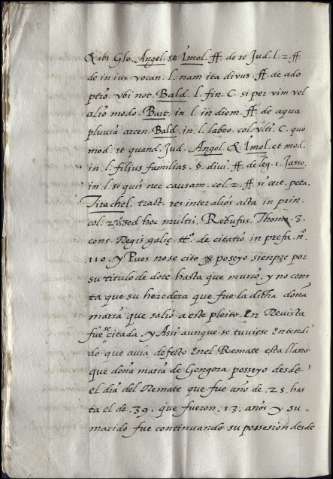 & ibi Glo. Angel. & Imol. ff. de re Jud. l. 2. ff.
de in ius vocan. l. nam ita divus. ff. de ado
ptio. ubi not. Bald. l. fin. C. si per vim vel
alio modo. Bart. in l. in diem. ff. de aqua
pluvia arcen. Bald. in l. labeo. C. quo
mod. et quand. Jud. Angol. & Imol. et mod.
in l. filius familias. §. divi. ff. de leg. 1. Jaso.
in l. si quis nec causam. col. 2. ff. si cert. peta.
Tirachel. tract. res inter alios acta in prin.
col. 2. sed hoc multi. Rebufus. Thom. 3.
cons. Regis galie. tt.º de citatio. in prefa. n.º
110. y Pues no se cito & poseyo siempre por
su titulo de dote hasta que murio, y no cons
ta que su heredera que fue la dicha doña
maria que salio a este pleito. En Revista
fue citada, y Assi aunque se tuviese Entendi
do que avia defecto En el Remate esta llano
que doña maria de Gongora posseyo desde
el dia del Remate que fue año de .25. has
ta el de .39. que fueron .13. años y su
marido fue continuando su possesion desde